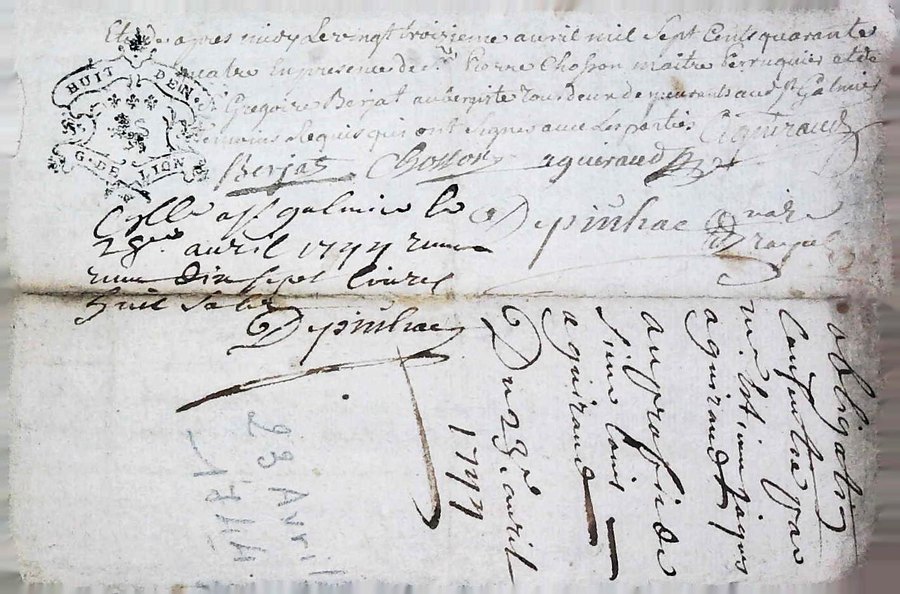 apres midy Le vingt troizieme avril mil Sept Cents quarante
quatre En presence de Sr. Pierre Chosson maitre Perruquier et de
Gregoire Berjat aubergiste tous deux demeurants aud St Galmier
temoins Requis qui ont Signes avec Les parties Aguiraud
Berjat Chosson aguiraud
HUIT DEN
G. DE LION
a st galmier le
28e avril 1744
dix sept livres
huit sols
Depinhac
Depinhac
obligation
Consentie par
me. Estienne Jaques
aguiraud
au profit de
Sieur Louis
aguiraud
Du 23e. avril
1744
23 Avril
1744